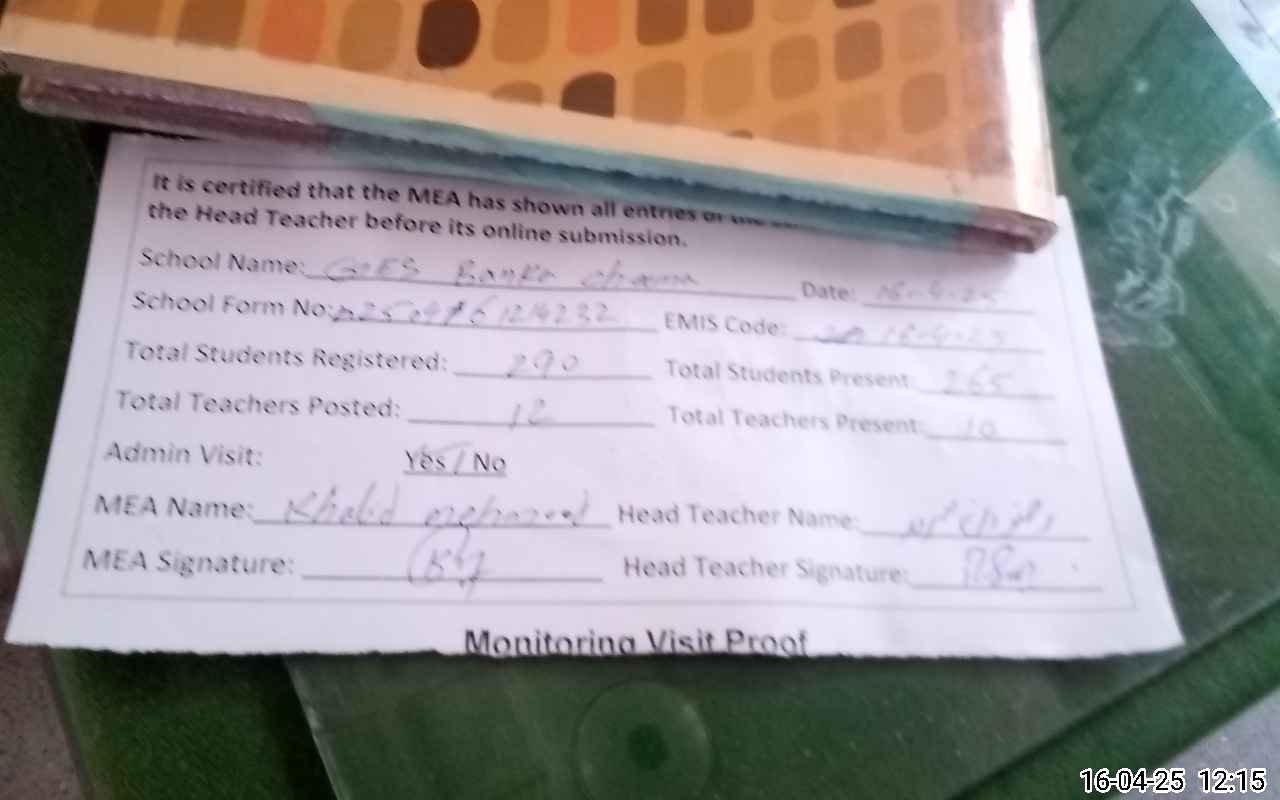 It is certified that the MEA has shown all entries of the
the Head Teacher before its online submission.
School Name: Chamma Date: 16-4-25
School Form No: EMIS Code: 16-4-25
Total Students Registered: 290 Total Students Present: 265
Total Teachers Posted: 12 Total Teachers Present: 10
Admin Visit: Yes / No
MEA Name: Khalid Mehmood Head Teacher Name:
MEA Signature: Head Teacher Signature:
Monitoring Visit Proof
16-04-25 12:15